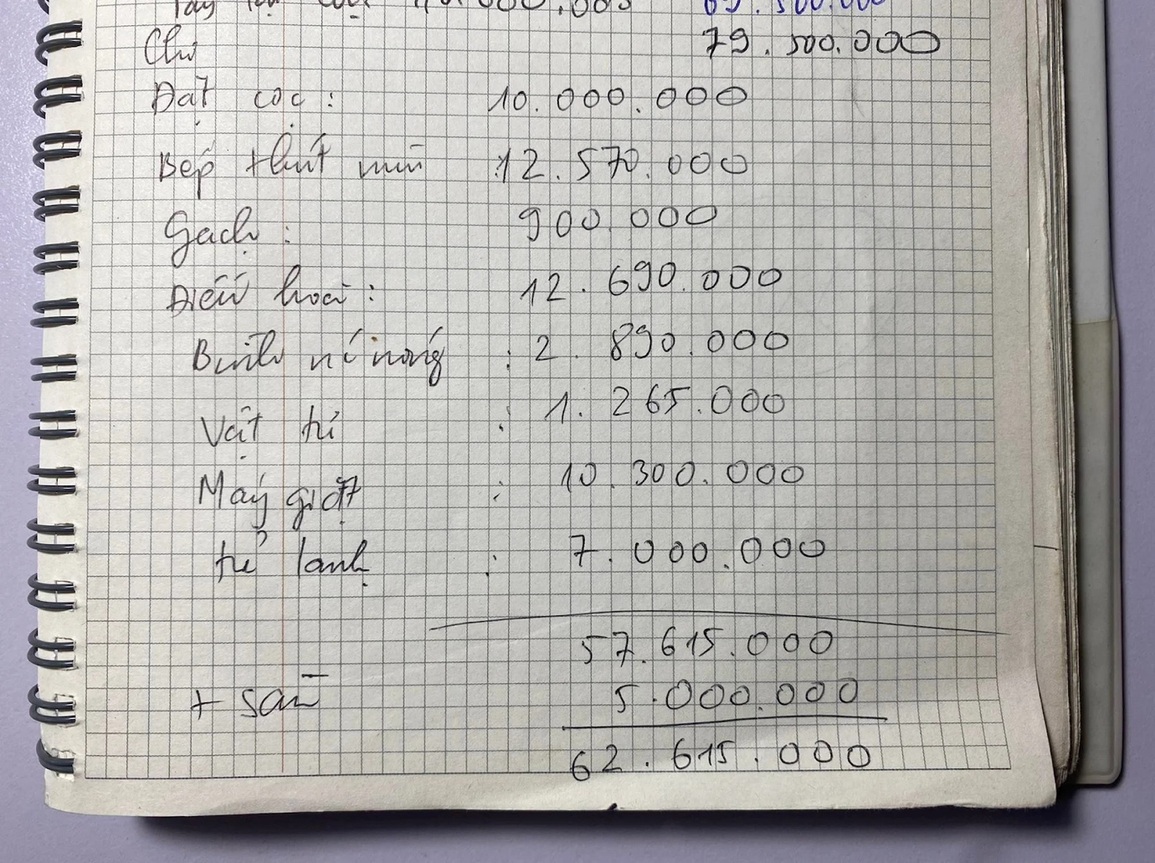 000.000 69.500.000
Chị 79.500.000
Đặt cọc: 10.000.000
Bếp + hút mùi : 12.570.000
Gạch : 900.000
Điều hoà : 12.690.000
Bình nc nóng : 2.890.000
Vật tư : 1.265.000
Máy giặt : 10.300.000
tủ lạnh : 7.000.000
57.615.000
+ sàn 5.000.000
62.615.000